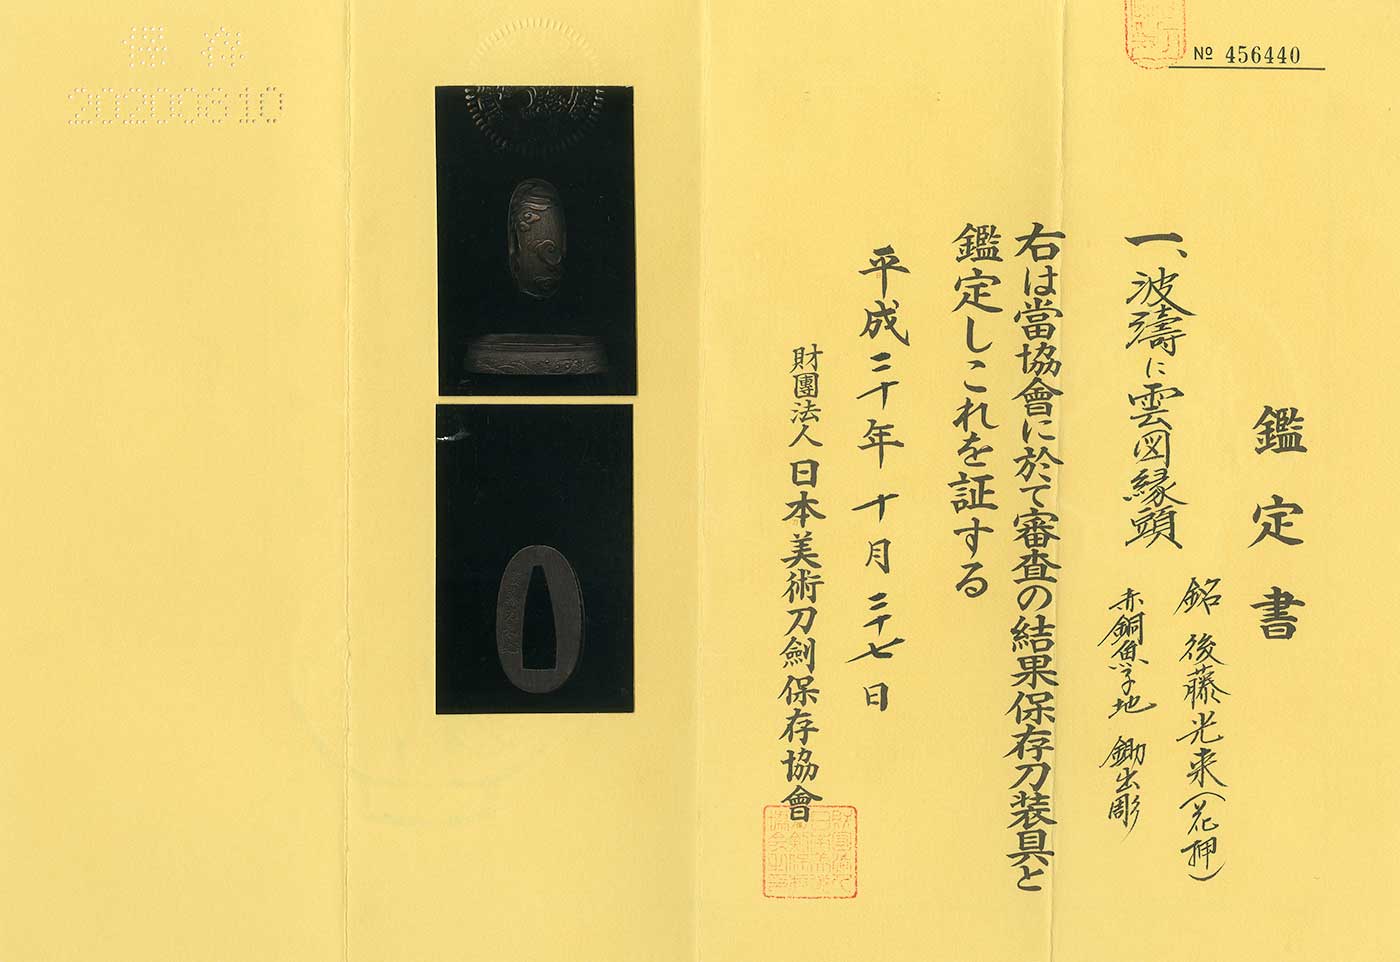 № 456440
鑑定書
一、波濤に雲図縁頭
銘 後藤光来(花押)
赤銅魚子地 鋤出彫
右は當協會に於て審査の結果保存刀装具と
鑑定しこれを証する
平成二十年十月二十七日
財團法人日本美術刀劍保存協會
保存
20200810